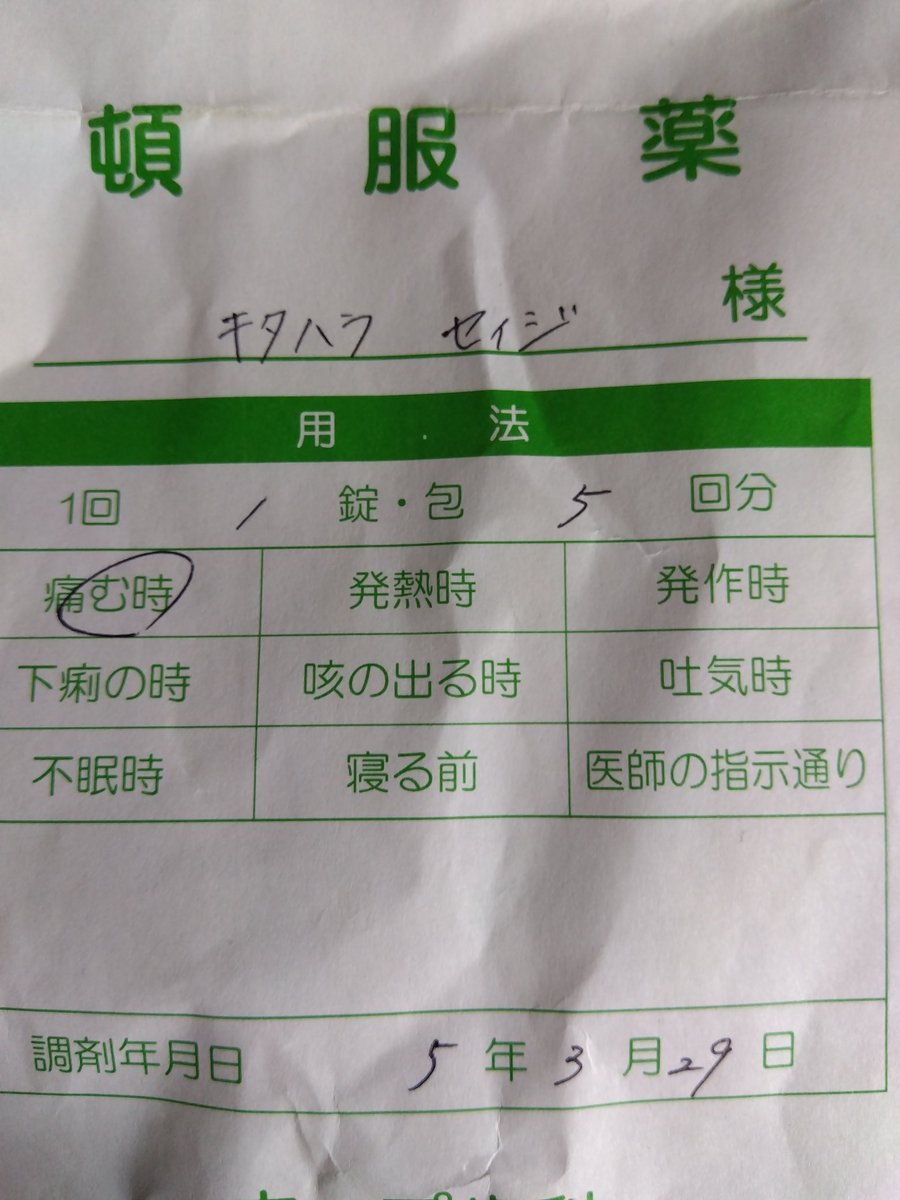 頓服薬
キタハラ セイジ 様
用・法
1回 1 錠・包 5 回分
痛む時 発熱時 発作時
下痢の時 咳の出る時 吐気時
不眠時 寝る前 医師の指示通り
調剤年月日 5年3月29日